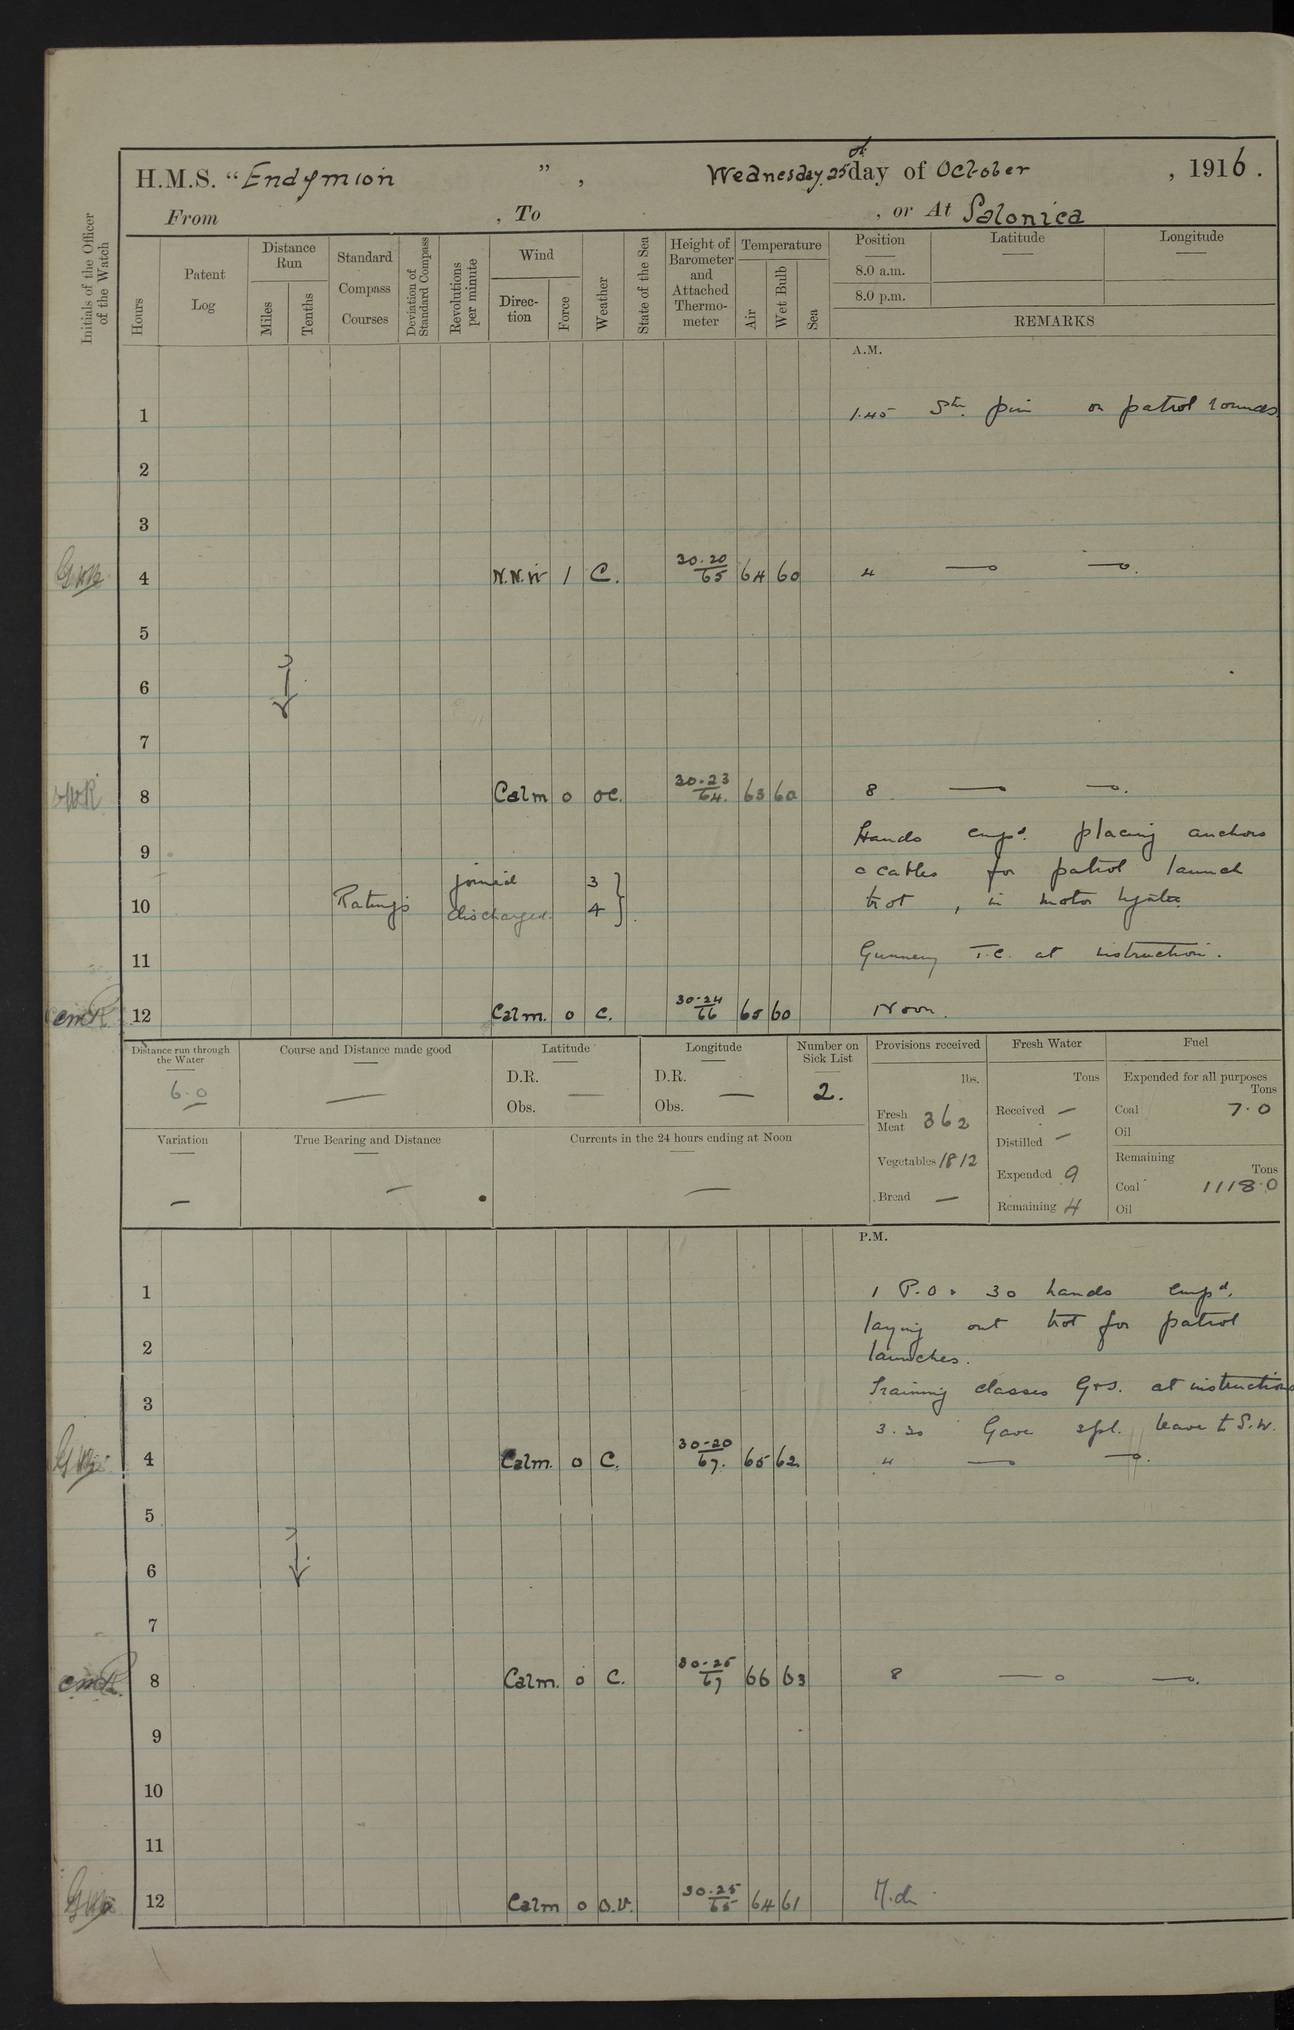 H.M.S. "Endymion", Wednesday 25th day of October, 1916.
From , To , or At Salonica
Initials of the Officer of the Watch
Hours
Patent Log
Distance Run
Miles
Tenths
Standard Compass Courses
Deviation of Standard Compass
Revolutions per minute
Wind
Direction
Force
Weather
State of the Sea
Height of Barometer and Attached Thermometer
Temperature
Air
Wet Bulb
Sea
Position
Latitude
Longitude
8.0 a.m.
8.0 p.m.
REMARKS
A.M.
1 1.45 on patrol rounds
2
3
4 N.N.W 1 C. 30.20/65 64 60 4 — —.
5
6
7
8 Calm 0 oc. 30.23/64. 63 60 8 — —.
Hands empd. placing anchors
9
Ratings joined 3 cables for patrol launch
10 discharged 4 trot, in motor
11 Gunnery T.C. at instruction.
12 Calm. 0 C. 30.24/66 65 60 Noon.
Distance run through the Water
6.0
Course and Distance made good
—
Latitude
D.R.
Obs. —
Longitude
D.R.
Obs. —
Number on Sick List
2.
Provisions received
lbs.
Fresh Meat 362
Vegetables 1812
Bread —
Fresh Water
Tons
Received —
Distilled —
Expended 9
Remaining 4
Fuel
Expended for all purposes
Tons
Coal 7.0
Oil
Remaining
Tons
Coal 1118.0
Oil
Variation
—
True Bearing and Distance
—
Currents in the 24 hours ending at Noon
—
P.M.
1 1 P.O. 30 hands empd.
laying out trot for patrol
2 launches.
3 Training classes G+S. at instructions
3.30 Gave spl. leave to S.W.
4 Calm. 0 C. 30.20/67. 65 62 4 — —.
5
6
7
8 Calm. 0 C. 30.25/67 66 63 8 — —.
9
10
11
12 Calm 0 O.V. 30.25/65 64 61 M.d.